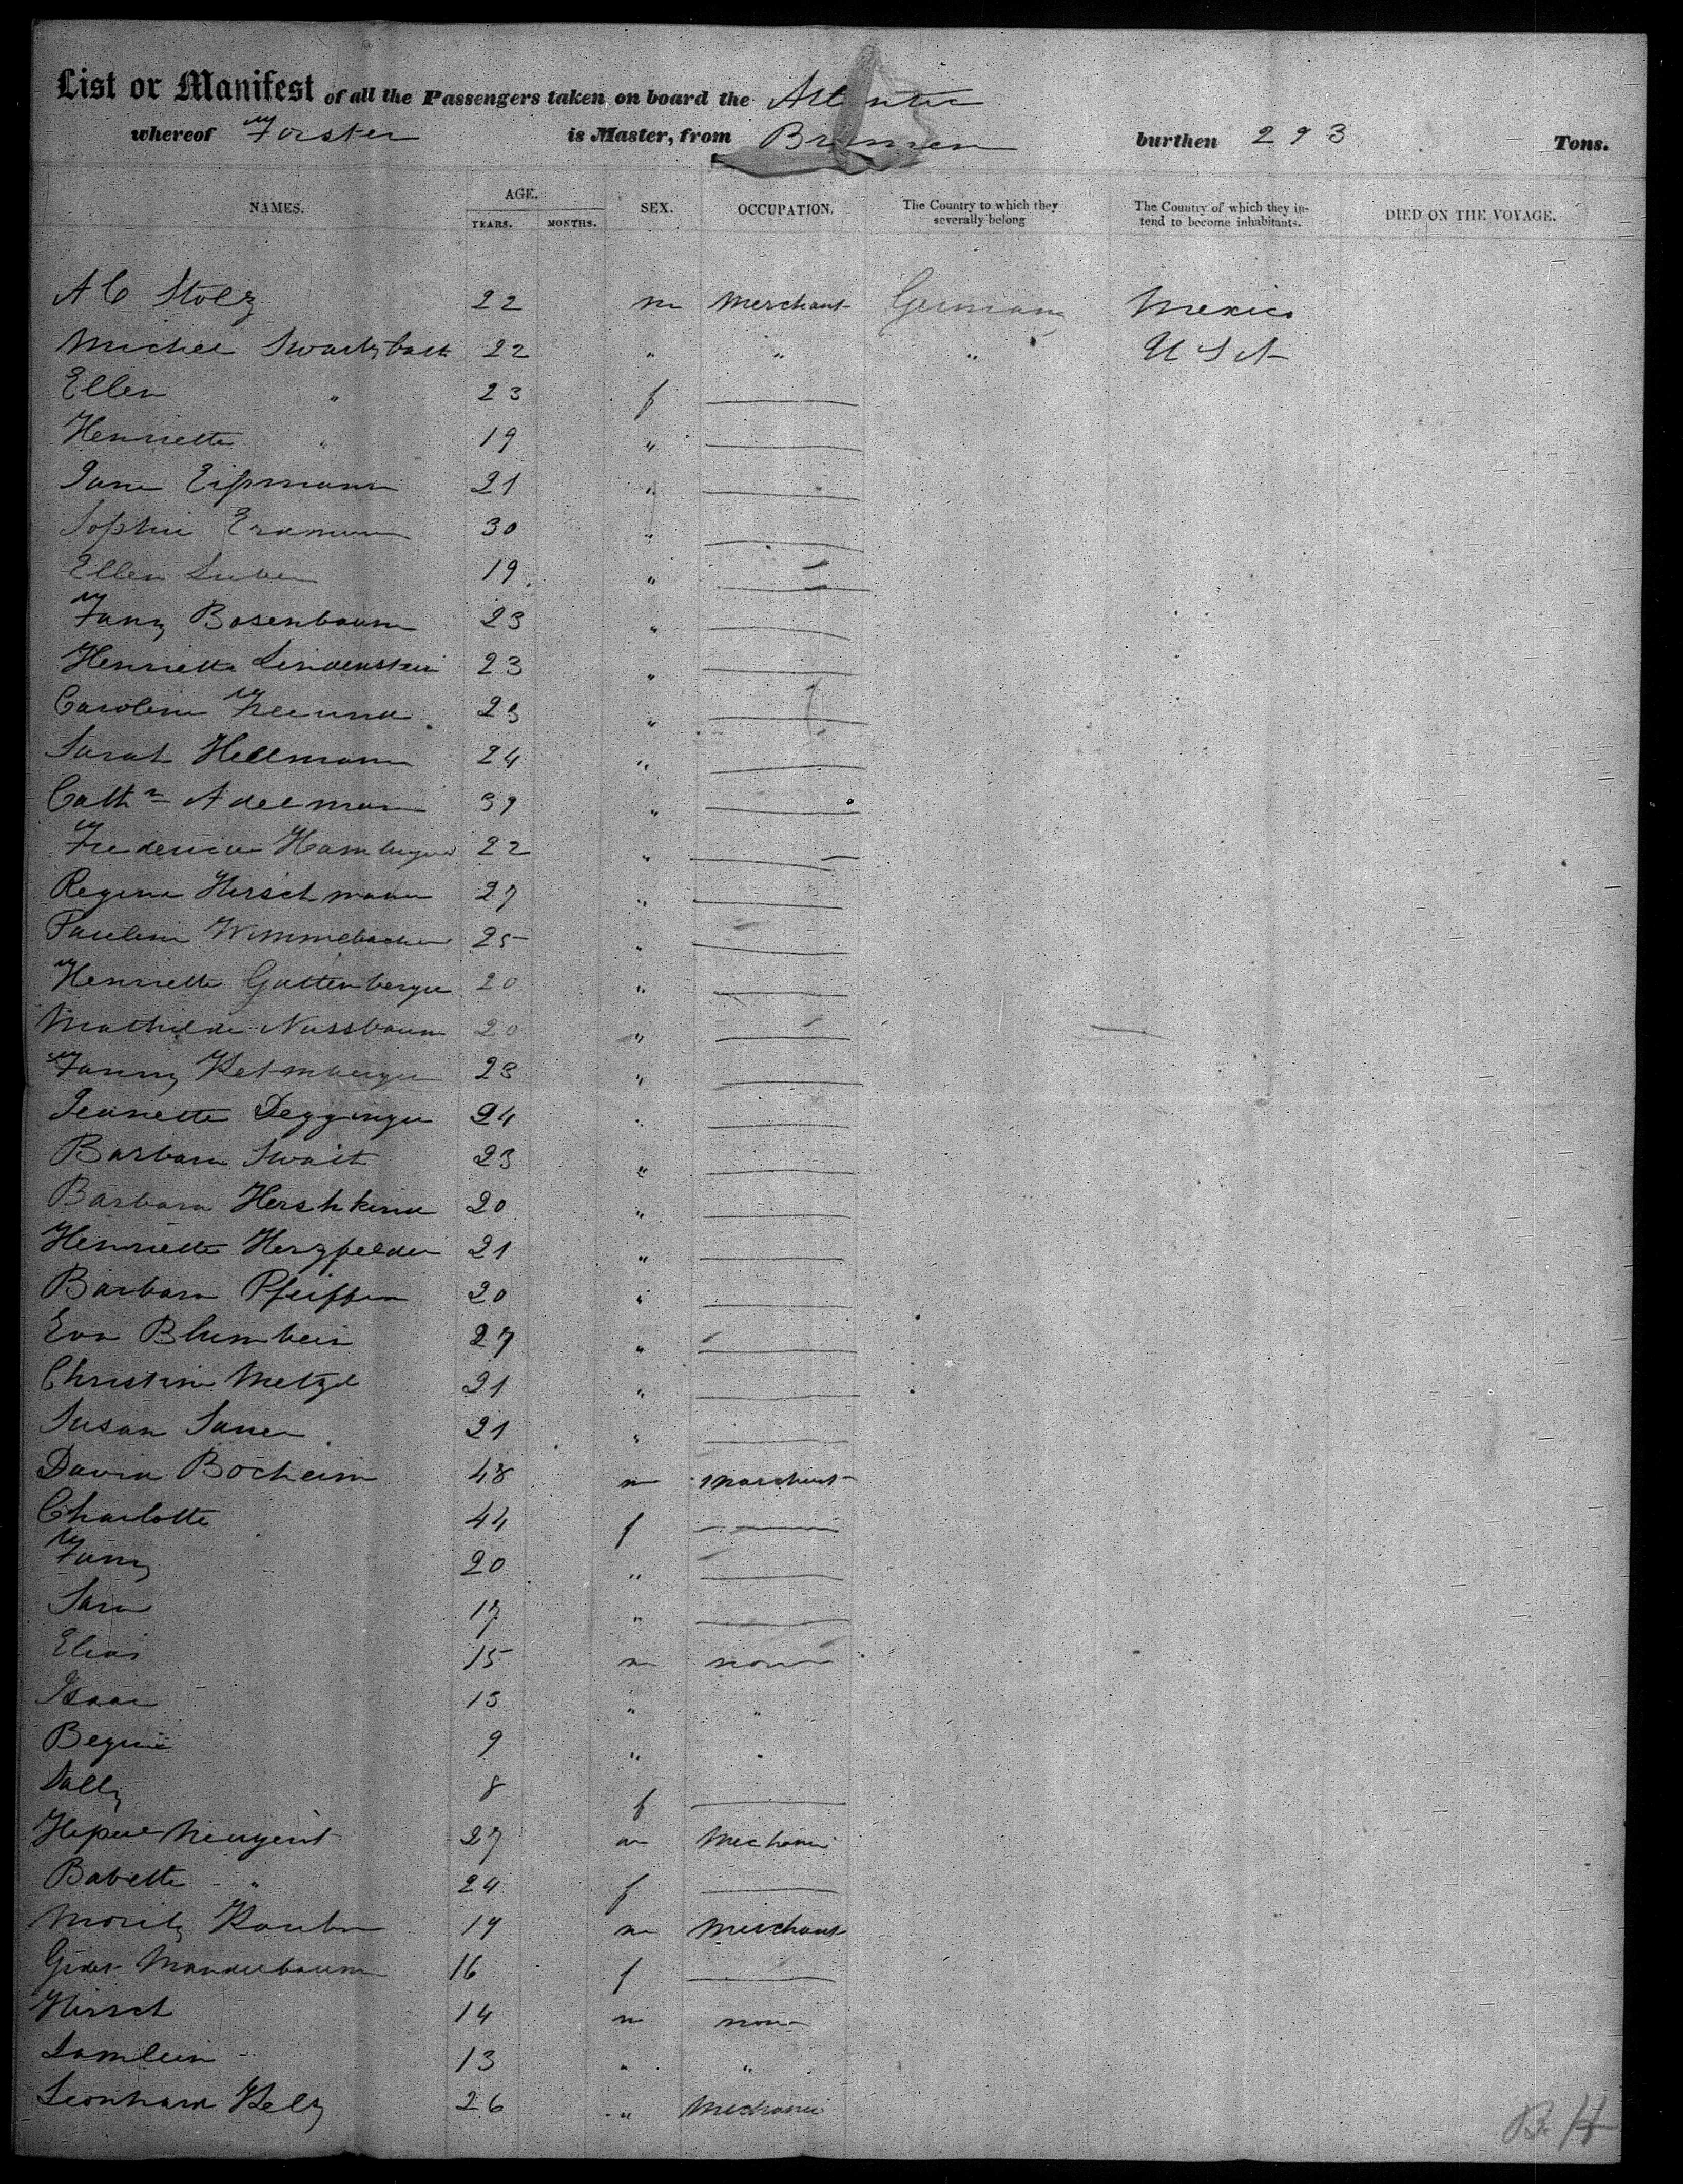 List or Manifest of all the Passengers taken on board the Atlantic
whereof Forster is Master, from Bremen burthen 293 Tons.
NAMES. AGE. YEARS. MONTHS. SEX. OCCUPATION. The Country to which they severally belong The Country of which they intend to become inhabitants. DIED ON THE VOYAGE.
A C Stolz 22 m Merchant Germany Mexico
Michel Swartzbach 22 " " " U S A
Ellen " 23 f
Henriette " 19 "
Jane Eißmann 21 "
Sophie 30 "
Ellen 19 "
Fany Bosenbaum 23 "
Henriette Lindenstein 23 "
Caroline Freund 23 "
Sarah Hellmann 24 "
Cathn Adelmann 39 "
Frederica Hamburger 22 "
Regina Hirschmann 27 "
Pauline Wimmelbacher 25 "
Henriette Guttenberger 20 "
Mathilde Nussbaum 20 "
Fanny 23 "
Jeanette Degginger 24 "
Barbara 23 "
Barbara Hershkind 20 "
Henriette Herzfelder 21 "
Barbara Pfeiffer 20 "
Eva Blumbein 27 "
Christine Metzel 21 "
Susan Sauer 21 "
David Bocheim 48 m Marchent
Charlotte 44 f
Fany 20 "
Sara 17 "
Elias 15 m none
Isaac 13 " "
9 " "
Sally 8 f
27 m Mechanic
Babette " 24 f
Moritz 19 m Merchant
Mandelbaum 16 f
Hirsch 14 m none
Lamlein 13 " "
Leonhard Kelz 26 " Mechanic
B. H